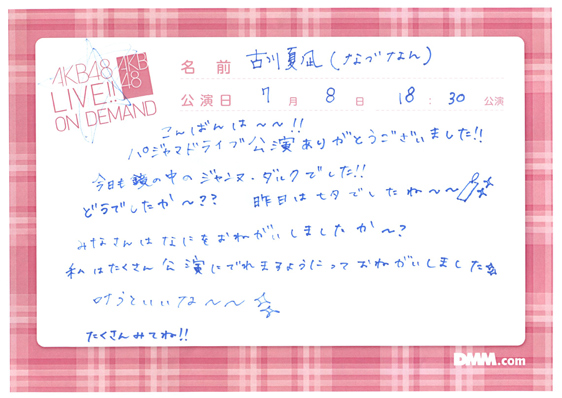 AKB48
LIVE!!
ON DEMAND
AKB
48
名前 古川夏凪(なづなん)
公演日 7月8日 18:30公演
こんばんは〜〜!!
パジャマドライブ公演ありがとうございました!!
今日も鏡の中のジャンヌ・ダルクでした!!
どうでしたか〜?? 昨日は七夕でしたね〜〜
みなさんはなにをおねがいしましたか〜?
私はたくさん公演にでれますようにっておねがいしました☆
叶うといいな〜〜
たくさんみてね!!
DMM.com